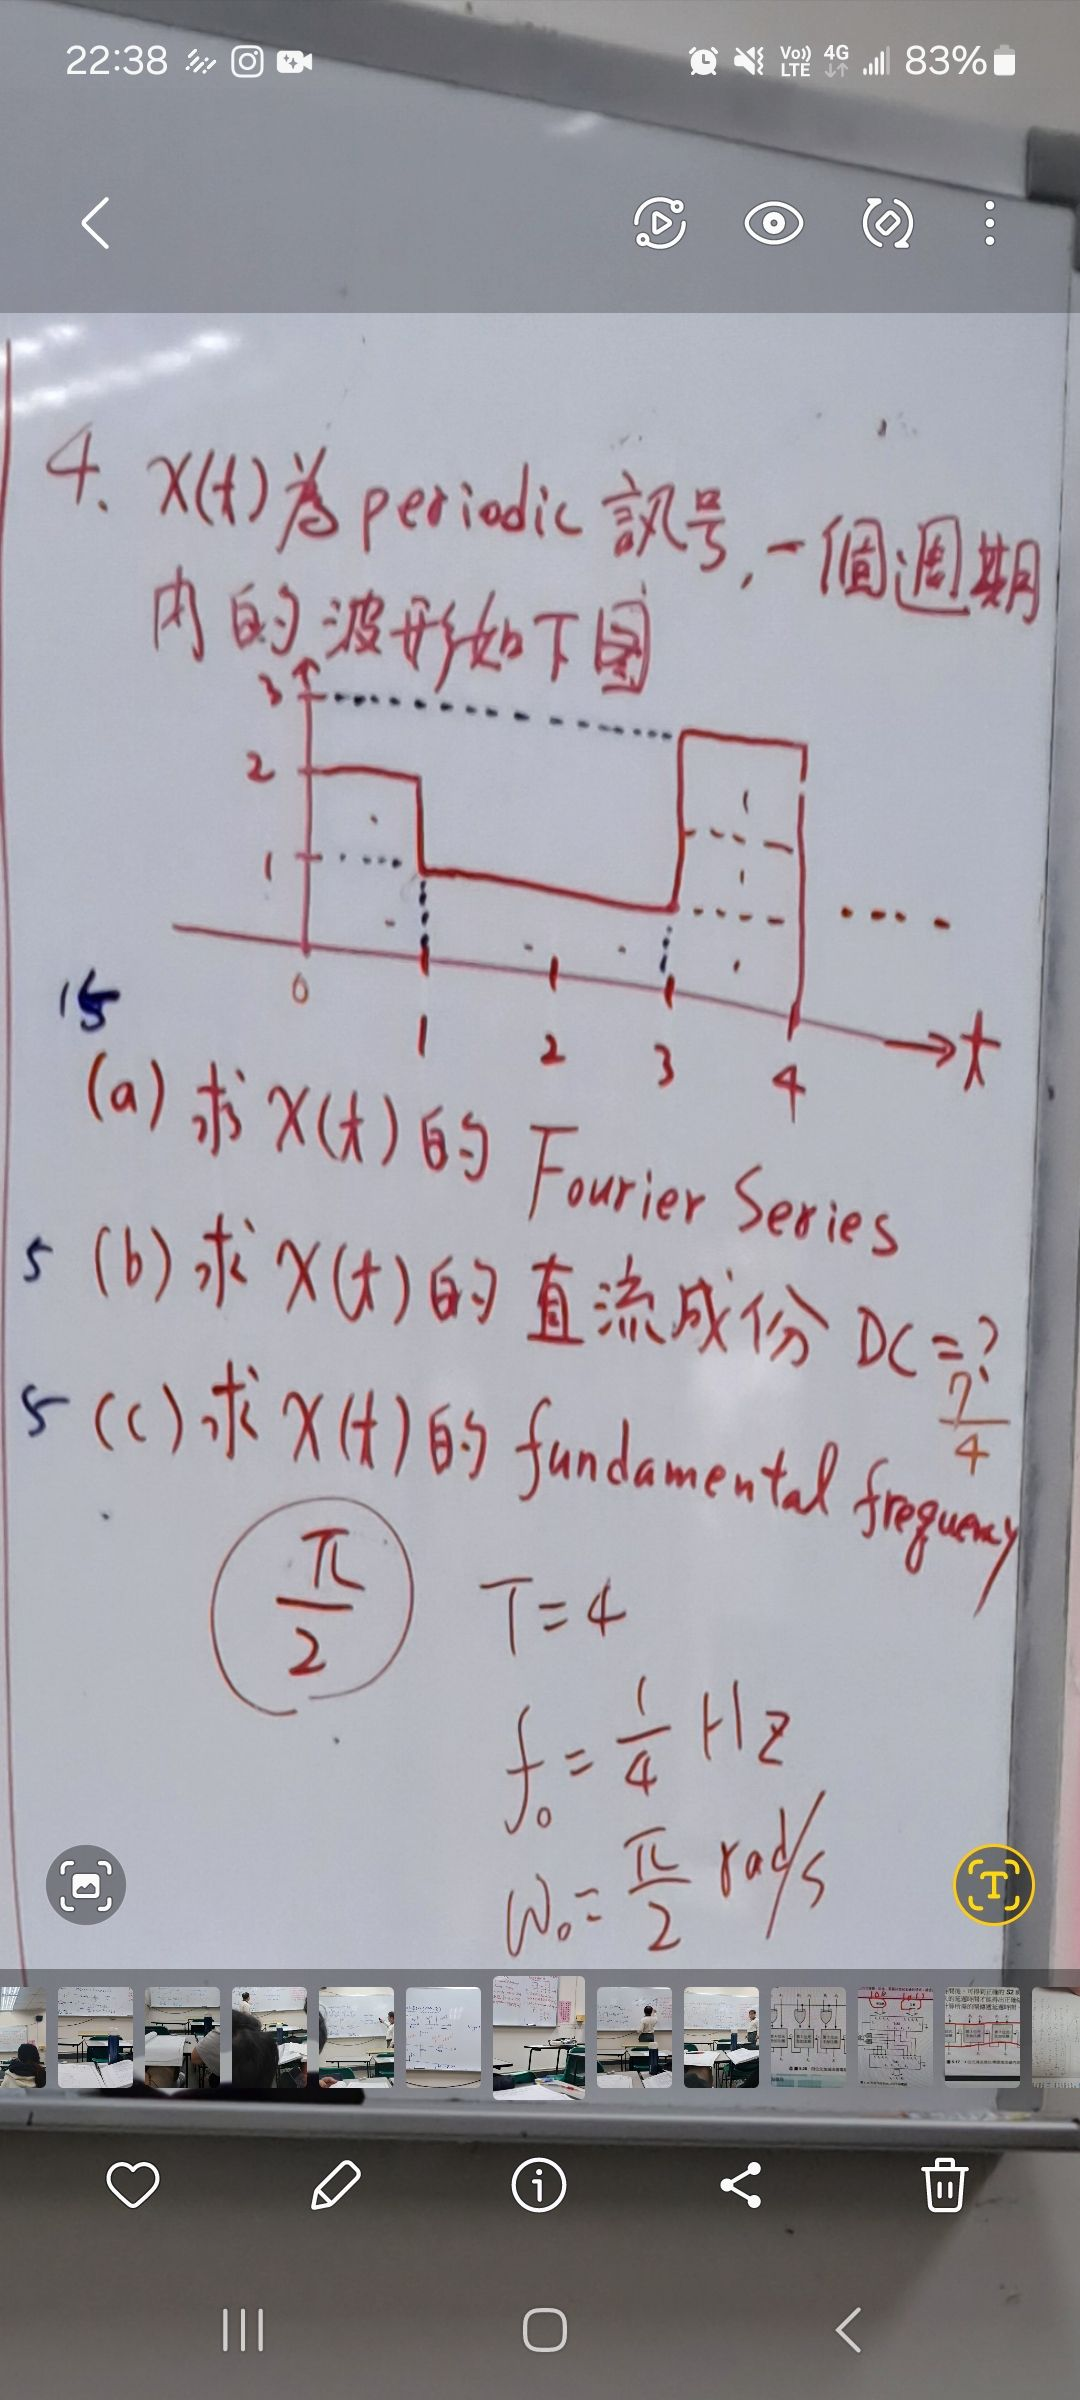 22:38
Vo)) LTE 4G 83%
4. X(t)為 periodic 訊号, 一個週期
內的波形如下圖
3
2
1
0 1 2 3 4 t
15
(a) 求 X(t) 的 Fourier Series
5 (b) 求 X(t) 的 直流成份 DC = ?
7/4
5 (c) 求 X(t) 的 fundamental frequency
π/2 T = 4
f₀ = 1/4 Hz
ω₀ = π/2 rad/s
T